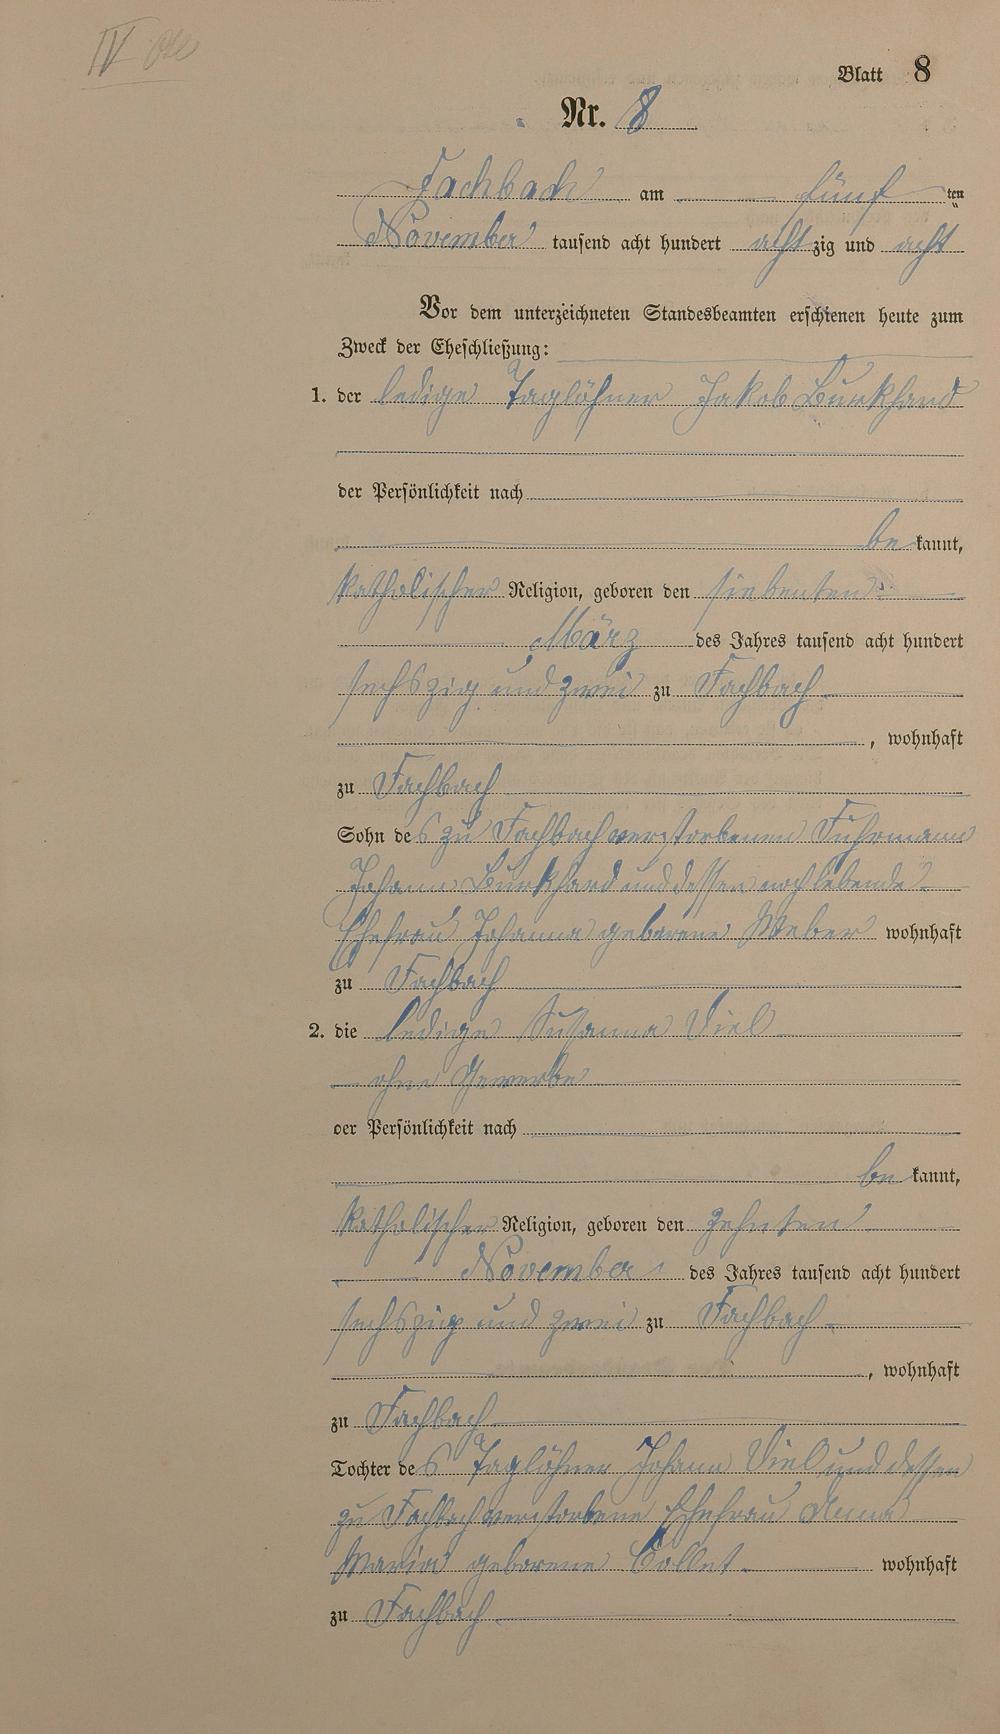 IV
Blatt 8
Nr. 8
Fachbach am fünf ten
November tausend acht hundert achtzig und acht
Vor dem unterzeichneten Standesbeamten erschienen heute zum
Zweck der Eheschließung:
1. der ledige Taglöhner Jakob Burkhard
der Persönlichkeit nach
be kannt,
katholischer Religion, geboren den siebenten
März des Jahres tausend acht hundert
sechszig und zwei zu Fachbach
, wohnhaft
zu Fachbach
Sohn des zu Fachbach verstorbenen Fuhrmann
Johann Burkhard und dessen noch lebende
Ehefrau Johanna geborene Weber wohnhaft
zu Fachbach
2. die ledige Susanna Viel
ohne Gewerbe
der Persönlichkeit nach
be kannt,
katholischer Religion, geboren den zehnten
November des Jahres tausend acht hundert
sechszig und zwei zu Fachbach
, wohnhaft
zu Fachbach
Tochter des Taglöhner Johann Viel und dessen
zu Fachbach verstorbene Ehefrau Anna
Maria geborene Collet wohnhaft
zu Fachbach